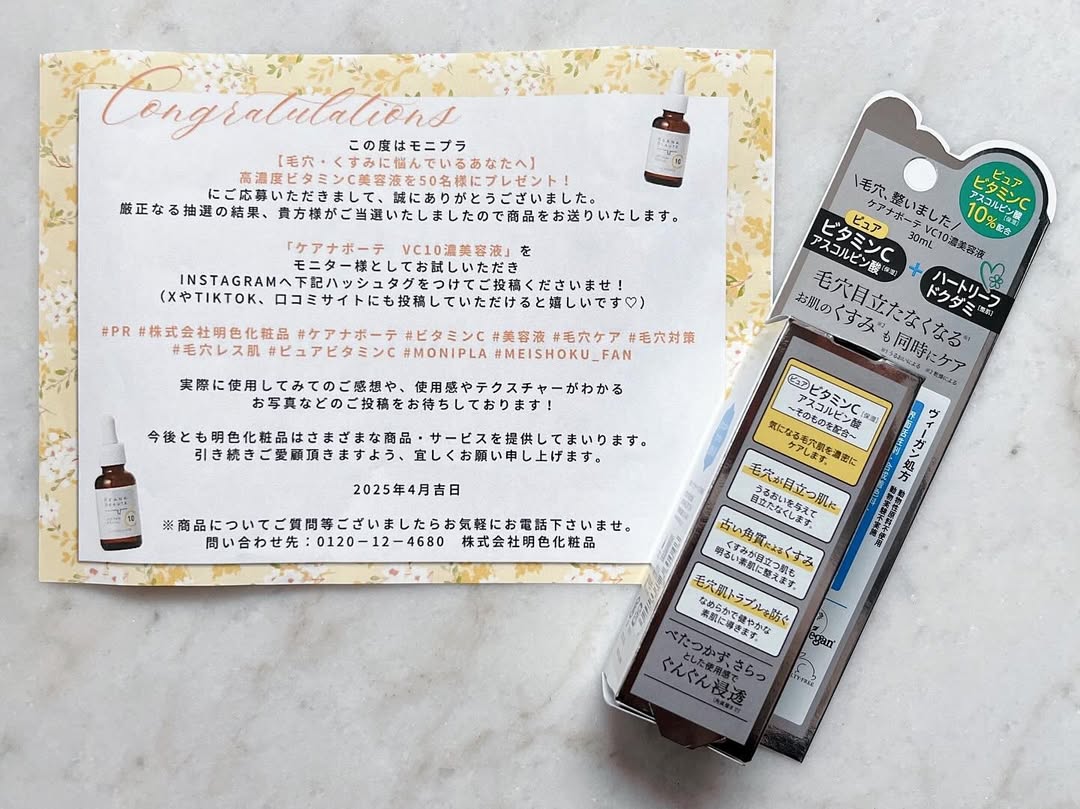 Congratulations
この度はモニプラ
【毛穴・くすみに悩んでいるあなたへ】
高濃度ビタミンC美容液を50名様にプレゼント!
にご応募いただきまして、誠にありがとうございました。
厳正なる抽選の結果、貴方様がご当選いたしましたので商品をお送りいたします。
「ケアナボーテ VC10濃美容液」を
モニター様としてお試しいただき
INSTAGRAMへ下記ハッシュタグをつけてご投稿くださいませ!
(XやTIKTOK、口コミサイトにも投稿していただけると嬉しいです♡)
#PR #株式会社明色化粧品 #ケアナボーテ #ビタミンC #美容液 #毛穴ケア #毛穴対策
#毛穴レス肌 #ピュアビタミンC #MONIPLA #MEISHOKU_FAN
実際に使用してみてのご感想や、使用感やテクスチャーがわかる
お写真などのご投稿をお待ちしております!
今後とも明色化粧品はさまざまな商品・サービスを提供してまいります。
引き続きご愛顧頂きますよう、宜しくお願い申し上げます。
2025年4月吉日
※商品についてご質問等ございましたらお気軽にお電話下さいませ。
問い合わせ先:0120-12-4680 株式会社明色化粧品
KEANA
BEAUTE
10
KEANA
BEAUTE
10
ピュア
ビタミンC
アスコルビン酸[保湿]
10%配合
\毛穴、整いました/
ケアナボーテ VC10濃美容液
30mL
ピュア
ビタミンC
アスコルビン酸[保湿]
+
ハートリーフ
ドクダミ[整肌]
毛穴目立たなくなる※1
お肌のくすみ※2も同時にケア
※1 うるおいによる ※2 乾燥による
ピュア ビタミンC[保湿]
アスコルビン酸
~そのものを配合~
気になる毛穴肌を濃密に
ケアします。
毛穴が目立つ肌に
うるおいを与えて
目立たなくします。
古い角質によるくすみ
くすみが目立つ肌も
明るい素肌に整えます。
毛穴肌トラブルを防ぐ
なめらかで健やかな
素肌に導きます。
べたつかず、さらっ
とした使用感で
ぐんぐん浸透
(角質層まで)
ヴィーガン処方
動物性原料不使用
動物実験未実施